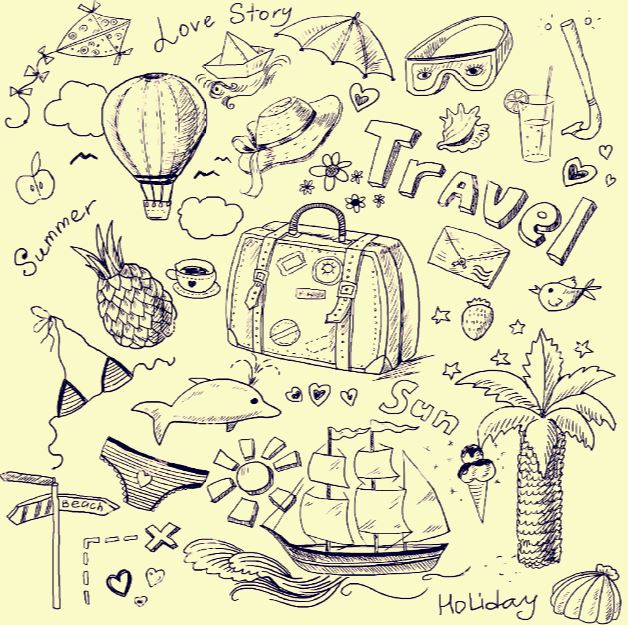 Love Story
Travel
Summer
Sun
Beach
Holiday